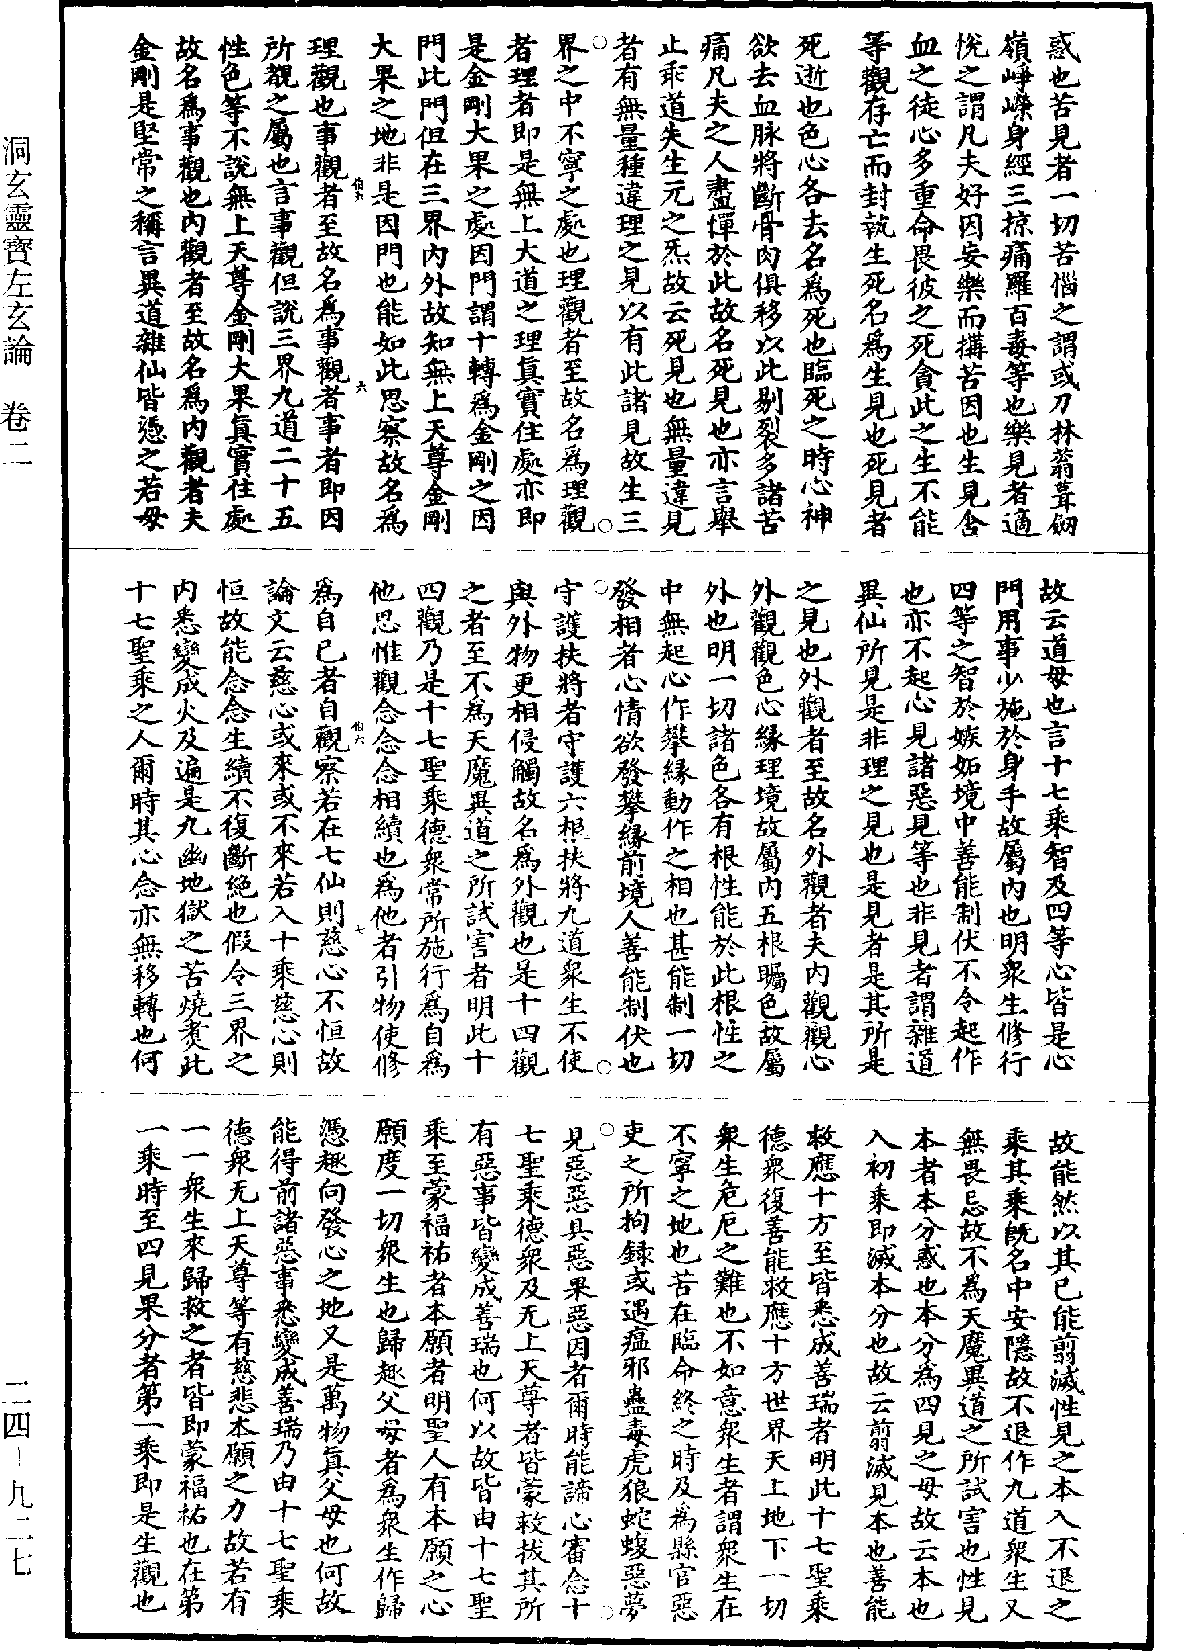 惑也苦見者一切苦惱之謂或刀林蓊葺劒
嶺崢嶸身經三掠痛羅百毒等也樂見者適
悅之謂凡夫好因安樂而搆苦因也生見含
血之徒心多重命畏彼之死貪此之生不能
等觀存亡而封執生死名爲生見也死見者
死逝也色心各去名爲死也臨死之時心神
欲去血脉將斷骨肉俱移以此剔裂多諸苦
痛凡夫之人盡憚於此故名死見也亦言舉
止乖道失生元之炁故云死見也無量違見
者有無量種違理之見以有此諸見故生三
界之中不寧之處也理觀者至故名爲理觀
者理者即是無上大道之理眞實住處亦即
是金剛大果之處因門謂十轉爲金剛之因
門此門但在三界內外故知無上天尊金剛
大果之地非是因門也能如此思察故名爲
理觀也事觀者至故名爲事觀者事者即因
所覩之屬也言事觀但說三界九道二十五
性色等不說無上天尊金剛大果眞實住處
故名爲事觀也內觀者至故名爲內觀者夫
金剛是堅常之稱言異道雜仙皆憑之若母
故云道母也言十七乘智及四等心皆是心
門用事少施於身手故屬內也明衆生修行
四等之智於嫉妬境中善能制伏不令起作
也亦不起心見諸惡見等也非見者謂雜道
異仙所見是非理之見也是見者是其所是
之見也外觀者至故名外觀者夫內觀觀心
外觀觀色心緣理境故屬內五根矚色故屬
外也明一切諸色各有根性能於此根性之
中無起心作攀緣動作之相也甚能制一切
發相者心情欲發攀緣前境人善能制伏也
守護扶將者守護六根扶將九道衆生不使
與外物更相侵觸故名爲外觀也是十四觀
之者至不爲天魔異道之所試害者明此十
四觀乃是十七聖乘德衆常所施行爲自爲
他思惟觀念念念相續也爲他者引物使修
爲自己者自觀察若在七仙則慈心不恒故
論文云慈心或來或不來若入十乘慈心則
恒故能念念生續不復斷絕也假令三界之
內悉變成火及遍是九幽地獄之苦燒煑此
十七聖乘之人爾時其心念亦無移轉也何
故能然以其已能翦滅性見之本入不退之
乘其乘既名中安隱故不退作九道衆生又
無畏忌故不爲天魔異道之所試害也性見
本者本分惑也本分爲四見之母故云本也
入初乘即滅本分也故云翦滅見本也善能
救應十方至皆悉成善瑞者明此十七聖乘
德衆復善能救應十方世界天上地下一切
衆生危厄之難也不如意衆生者謂衆生在
不寧之地也苦在臨命終之時及爲縣官惡
吏之所拘錄或遇瘟邪蠱毒虎狼蛇蝮惡夢
見惡惡具惡果惡因者爾時能諦心審念十
七聖乘德衆及无上天尊者皆蒙救拔其所
有惡事皆變成善瑞也何以故皆由十七聖
乘至蒙福祐者本願者明聖人有本願之心
願度一切衆生也歸趣父母者爲衆生作歸
憑趣向發心之地又是萬物眞父母也何故
能得前諸惡事悉變成善瑞乃由十七聖乘
德衆无上天尊等有慈悲本願之力故若有
一一衆生來歸救之者皆即蒙福祐也在第
一乘時至四見果分者第一乘即是生觀也
洞玄靈寶左玄論　卷二
二四-九二七